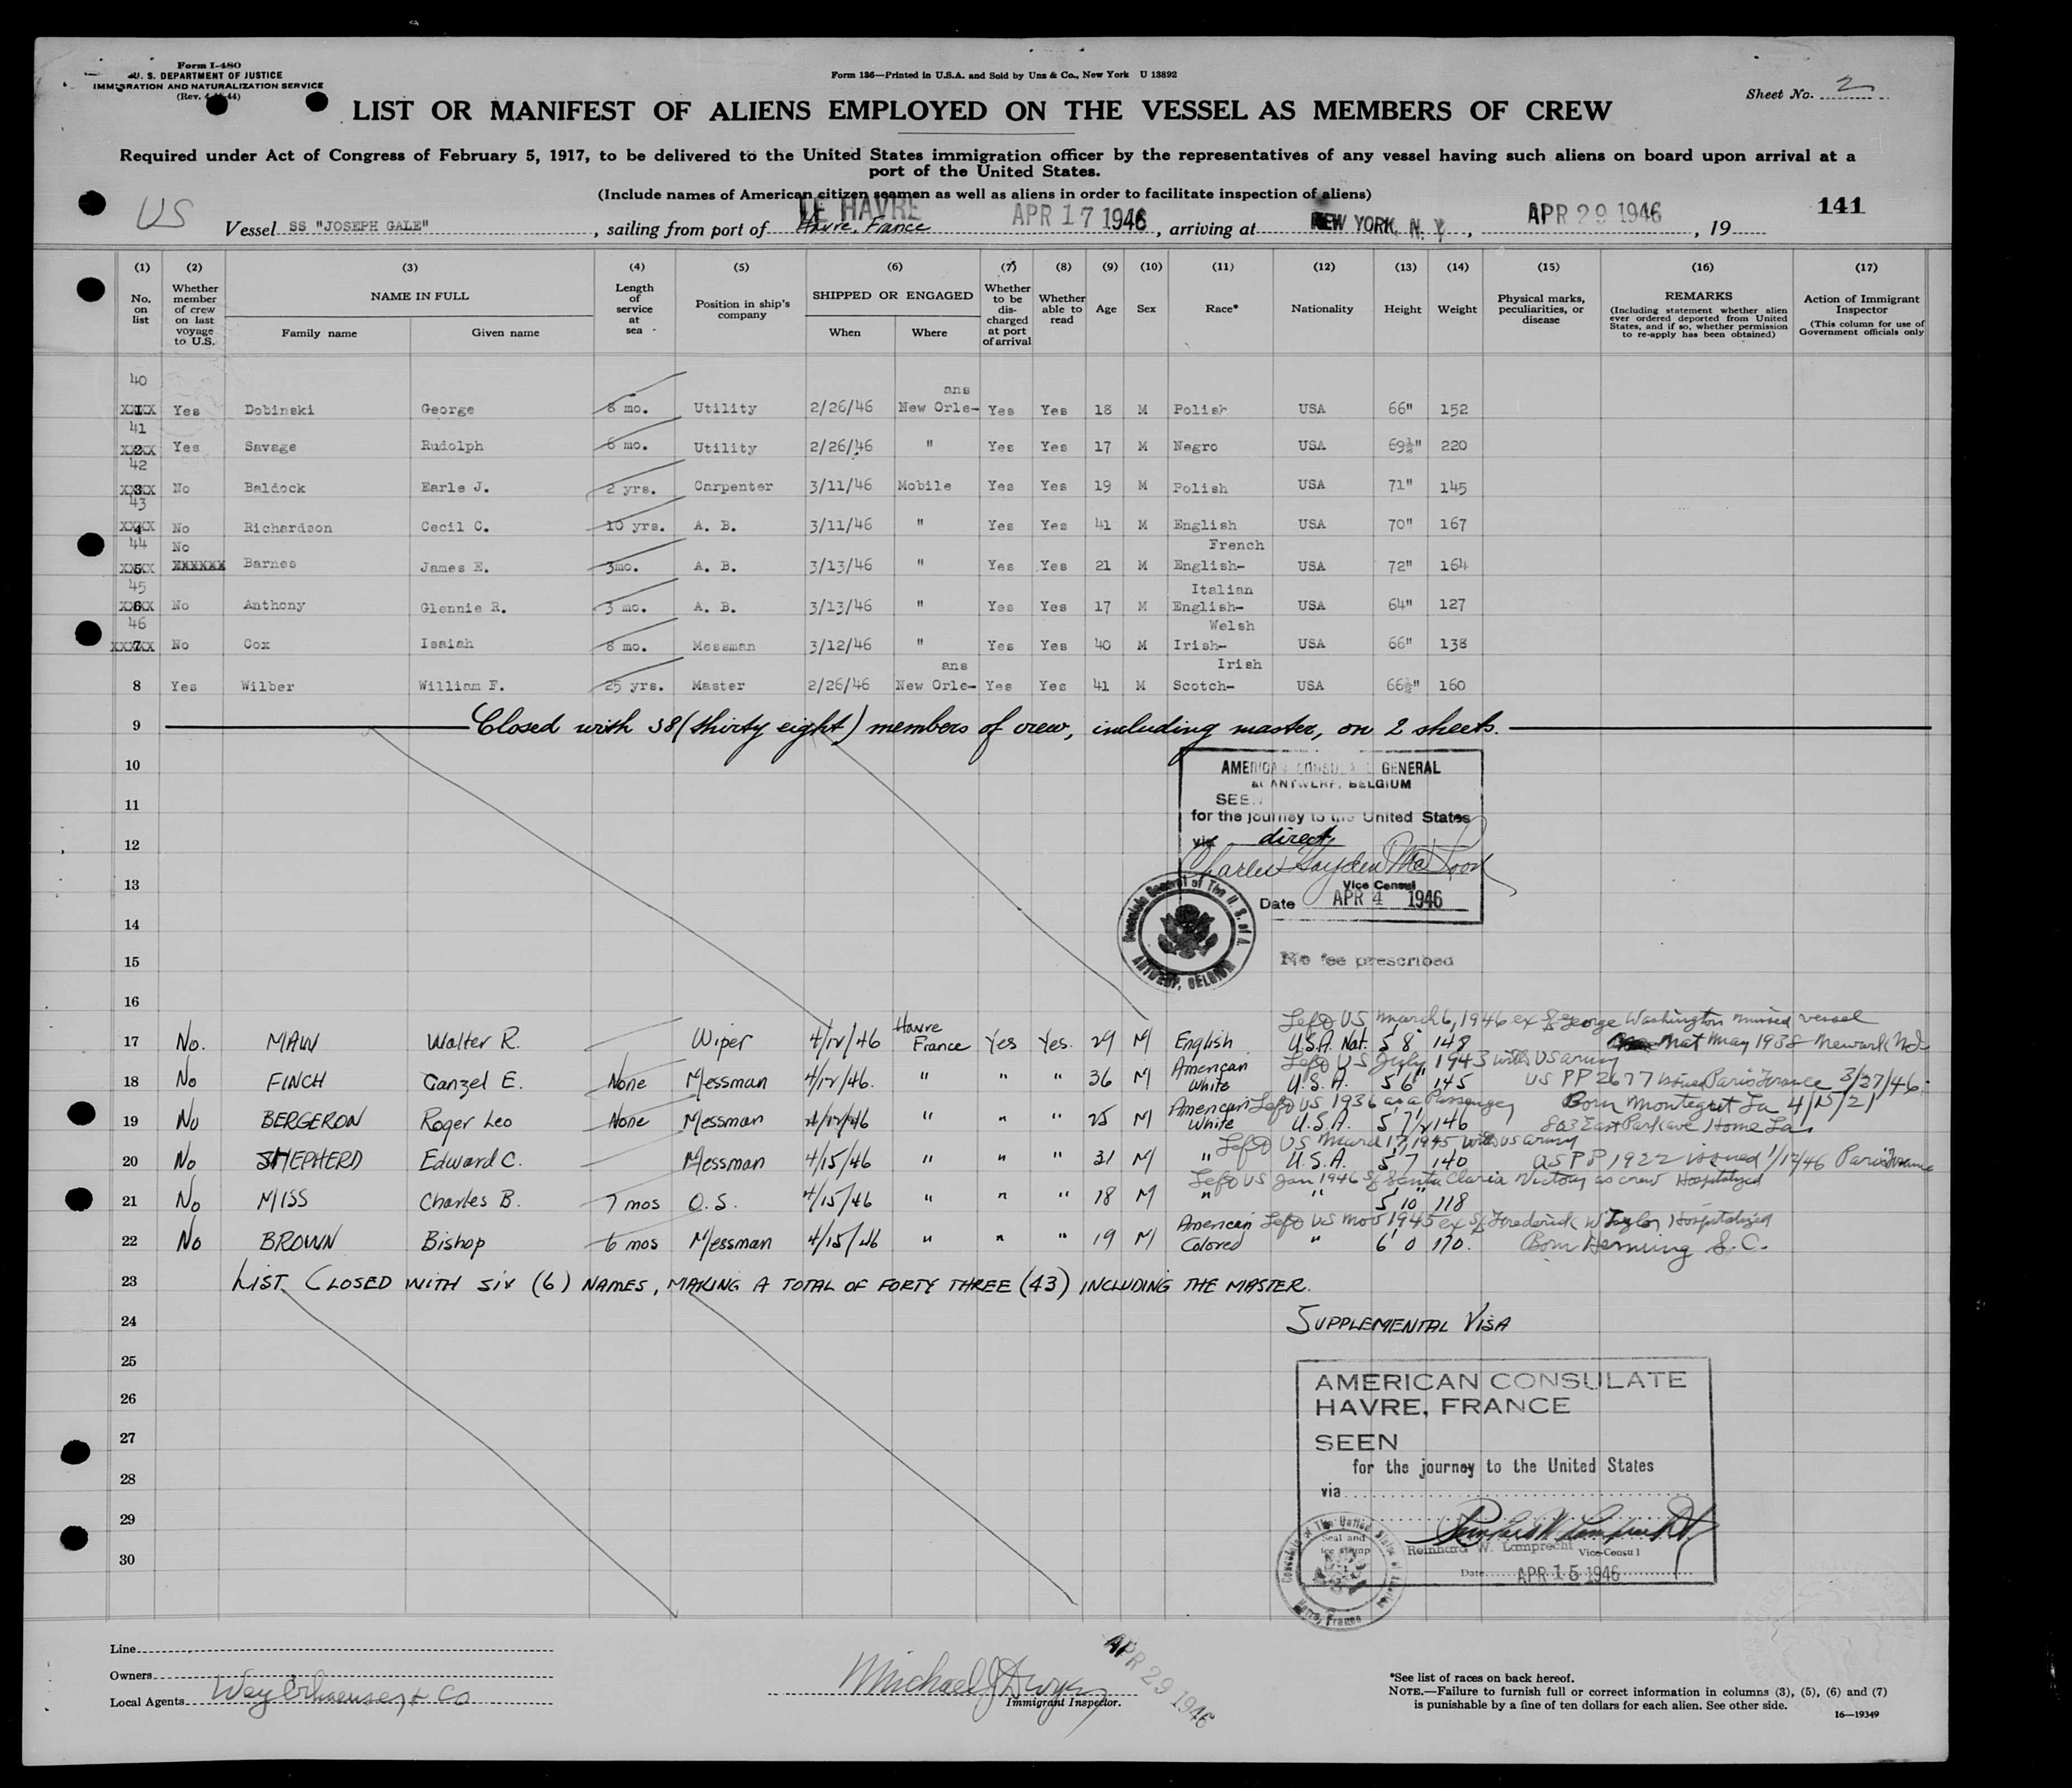 Form I-480
U. S. DEPARTMENT OF JUSTICE
IMMIGRATION AND NATURALIZATION SERVICE
Form 136—Printed in U.S.A. and Sold by Unz & Co., New York U 13892
Sheet No. 2
LIST OR MANIFEST OF ALIENS EMPLOYED ON THE VESSEL AS MEMBERS OF CREW
Required under Act of Congress of February 5, 1917, to be delivered to the United States immigration officer by the representatives of any vessel having such aliens on board upon arrival at a
port of the United States.
(Include names of American citizen seamen as well as aliens in order to facilitate inspection of aliens)
141
US
Vessel SS "JOSEPH GALE", sailing from port of LE HAVRE Havre, France APR 17 1946, arriving at NEW YORK, N. Y., APR 29 1946, 19
(1) (2) (3) (4) (5) (6) (7) (8) (9) (10) (11) (12) (13) (14) (15) (16) (17)
No. on list
Whether member of crew on last voyage to U.S.
NAME IN FULL
Family name
Given name
Length of service at sea
Position in ship's company
SHIPPED OR ENGAGED
When
Where
Whether to be discharged at port of arrival
Whether able to read
Age
Sex
Race*
Nationality
Height
Weight
Physical marks, peculiarities, or disease
REMARKS
(Including statement whether alien ever ordered deported from United States, and if so, whether permission to re-apply has been obtained)
Action of Immigrant Inspector
(This column for use of Government officials only
40 Yes Dobinski George 6 mo. Utility 2/26/46 New Orle-ans Yes Yes 18 M Polish USA 66" 152
41 Yes Savage Rudolph 6 mo. Utility 2/26/46 " Yes Yes 17 M Negro USA 69½" 220
42 No Baldock Earle J. 2 yrs. Carpenter 3/11/46 Mobile Yes Yes 19 M Polish USA 71" 145
43 No Richardson Cecil C. 10 yrs. A. B. 3/11/46 " Yes Yes 41 M English USA 70" 167
44 No Barnes James E. 3mo. A. B. 3/13/46 " Yes Yes 21 M English-French USA 72" 164
45 No Anthony Glennie R. 3 mo. A. B. 3/13/46 " Yes Yes 17 M English-Italian USA 64" 127
46 No Cox Isaiah 8 mo. Messman 3/12/46 " Yes Yes 40 M Irish-Welsh USA 66" 138
8 Yes Wilber William F. 25 yrs. Master 2/26/46 New Orle-ans Yes Yes 41 M Scotch-Irish USA 66½" 160
9 Closed with 38 (thirty eight) members of crew, including master, on 2 sheets.
10
AMERICAN CONSULATE GENERAL
at ANTWERP, BELGIUM
11
SEEN
for the journey to the United States
12
via direct
13
Vice Consul
Date APR 4 1946
Consulate General of The U. S. of A.
ANTWERP, BELGIUM
14
15
No fee prescribed
16
Left US March 6, 1946 ex SS George Washington missed vessel
17 No. MAW Walter R. Wiper 4/12/46 Havre France Yes Yes. 29 M English U.S.A. Nat. 5 8 148 Nat May 1938 Newark NJ
Left US July 1943 with US army
18 No FINCH Ganzel E. None Messman 4/12/46. " " " 36 M American White U.S.A. 5'6" 145 US PP 2677 issued Paris France 3/27/46
Left US 1936 as a Passenger Born Montegut La 4/15/21
19 No BERGERON Roger Leo None Messman 4/12/46 " " " 25 M American White U.S.A. 5'7½ 146 803 East Park ave
Left US March 17, 1945 with US army
20 No SHEPHERD Edward C. Messman 4/15/46 " " " 31 M " U.S.A. 5'7 140 US PP 1922 issued 1/12/46 Paris France
Left US Jan 1946 SS Santa Claria Victory as crew Hospitalized
21 No MISS Charles B. 7 mos O.S. 4/15/46 " " " 18 M " " 5'10" 118
Left US Nov 1945 ex SS Frederick W Taylor Hospitalized
22 No BROWN Bishop 6 mos Messman 4/15/46 " " " 19 M American Colored " 6'0 170. Born S.C.
23 LIST CLOSED WITH SIX (6) NAMES, MAKING A TOTAL OF FORTY THREE (43) INCLUDING THE MASTER.
24 SUPPLEMENTAL VISA
25
AMERICAN CONSULATE
26
HAVRE, FRANCE
27
SEEN
for the journey to the United States
28
via
29
Reinhard W. Lamprecht Vice-Consul
30
Date APR 15 1946
Line
Owners
Local Agents Weyerhaeuser & Co
Michael J Dwyer
Immigrant Inspector.
APR 29 1946
*See list of races on back hereof.
NOTE.—Failure to furnish full or correct information in columns (3), (5), (6) and (7)
is punishable by a fine of ten dollars for each alien. See other side.
16—19349